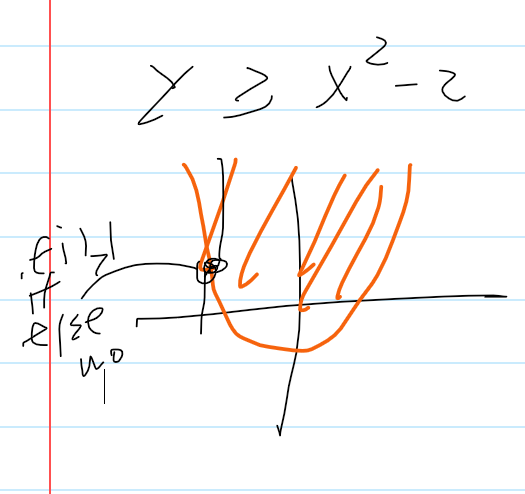 y ≥ x² - 2
fill
it
else
no